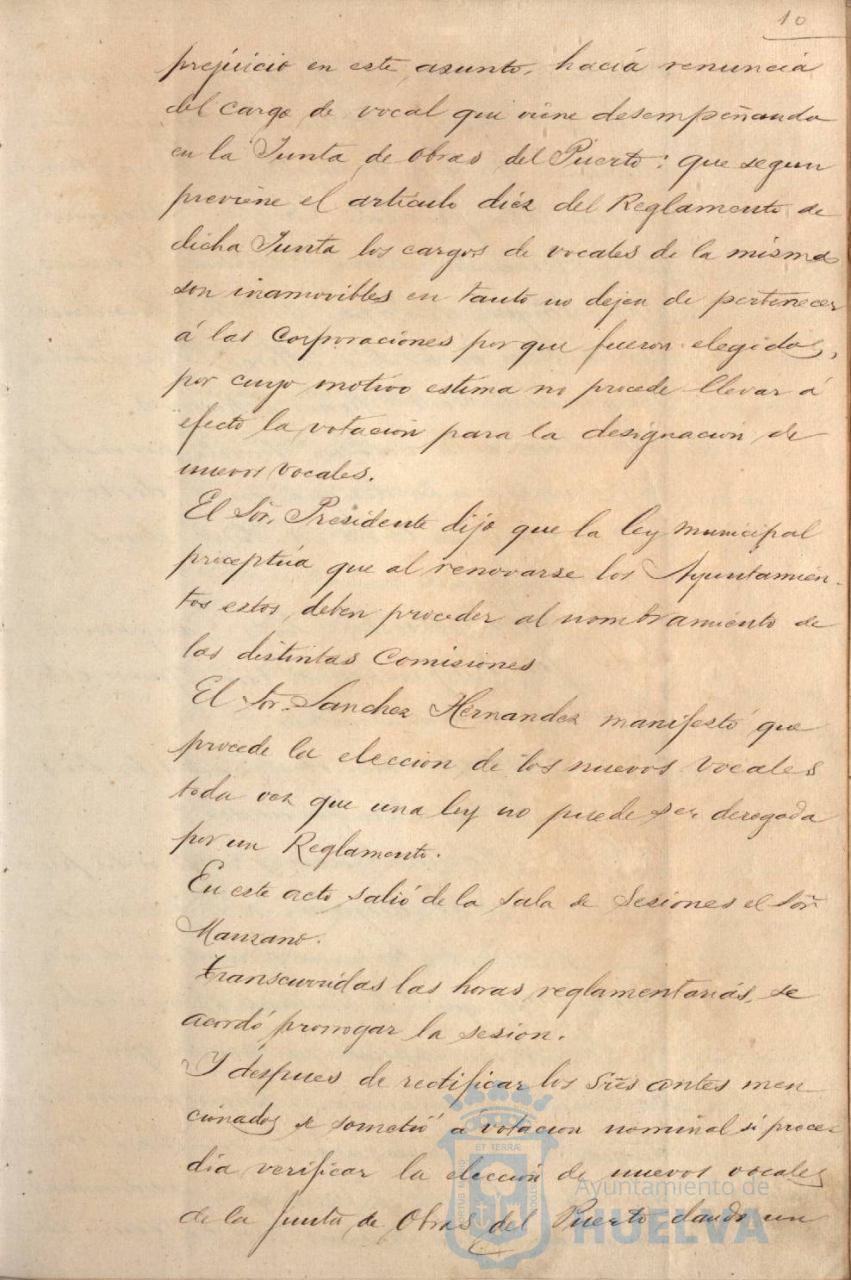 10
prejuicio en este asunto, hacía renuncia
del cargo de vocal que viene desempeñando
en la Junta de Obras del Puerto: que segun
previene el artículo diéz del Reglamento de
dicha Junta los cargos de vocales de la misma
son inamovibles en tanto no dejen de pertenecer
á las Corporaciones por que fueron elegidos,
por cuyo motivo estima no procede llevar á
efecto la votación para la designacion de
nuevos vocales.
El Sor. Presidente dijo que la ley Municipal
preceptúa que al renovarse los Ayuntamien-
tos estos, deben proceder al nombramiento de
las distintas Comisiones
El Sor. Sanchez Hernandez manifestó que
procede la eleccion de los nuevos vocales
toda vez que una ley no puede ser derogada
por un Reglamento.
En este acto salió de la sala de Sesiones el Sor
Manzano.
Transcurridas las horas reglamentarias, se
acordó prorrogar la sesion.
Y despues de rectificar los Sres antes men
cionados se sometió á votacion nominal si proce-
dia verificar la elección de nuevos vocales
de la Junta de Obras del Puerto dando un
Ayuntamiento de
HUELVA